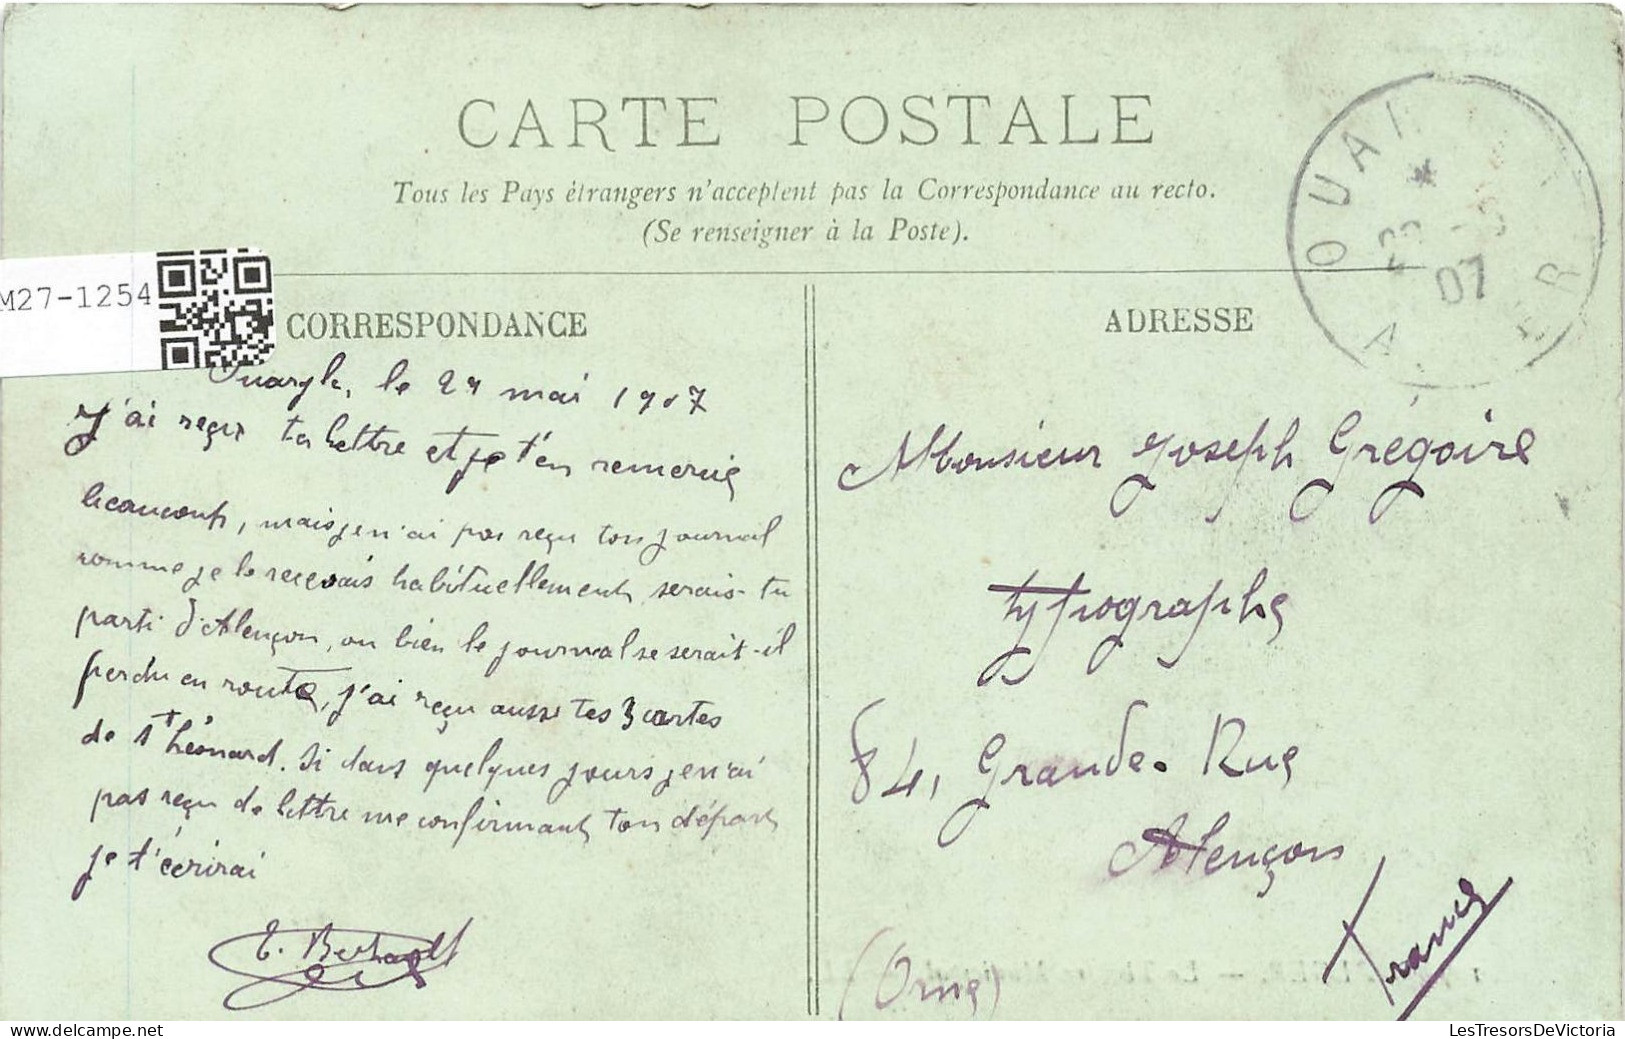 CARTE POSTALE
Tous les Pays étrangers n'acceptent pas la Correspondance au recto.
(Se renseigner à la Poste).
M27-1254
CORRESPONDANCE
le 27 mai 1907
J'ai reçu ta lettre et je t'en remercie
beaucoup, mais je n'ai pas reçu ton journal
comme je le recevais habituellement, serais-tu
parti d'Alençon, ou bien le journal se serait-il
perdu en route, j'ai reçu aussi tes 3 cartes
de St Léonard. Si dans quelques jours je n'ai
pas reçu de lettre me confirmant ton départ
je t'écrirai
E. Berhault
ADRESSE
Monsieur Joseph Grégoire
typographe
84, Grande-Rue
Alençon
(Orne)
France
OUAR
07
LesTresorsDeVictoria